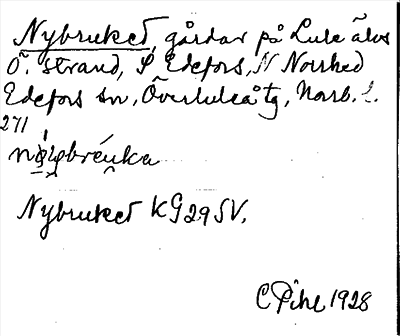 Nybruket, gårdar på Lule älvs
Ö. strand, S Edefors, N Norrhed
Edefors sn, Överluleå tg, Norrb. l.
271
Nybruket KG 29 SV.
C Pihl 1928